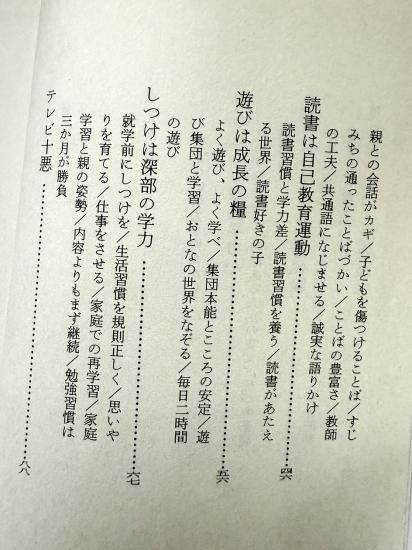 親との会話がカギ／子どもを傷つけることば／すじ
みちの通ったことばづかい／ことばの豊富さ／教師
の工夫／共通語になじませる／誠実な語りかけ
読書は自己教育運動……………………四六
読書習慣と学力差／読書習慣を養う／読書があたえ
る世界／読書好きの子
遊びは成長の糧……………………五六
よく遊び、よく学べ／集団本能とこころの安定／遊
び集団と学習／おとなの世界をなぞる／毎日二時間
の遊び
しつけは深部の学力……………………六七
就学前にしつけを／生活習慣を規則正しく／思いや
りを育てる／仕事をさせる／家庭での再学習／家庭
学習と親の姿勢／内容よりもまず継続／勉強習慣は
三か月が勝負
テレビ十悪……………………八八